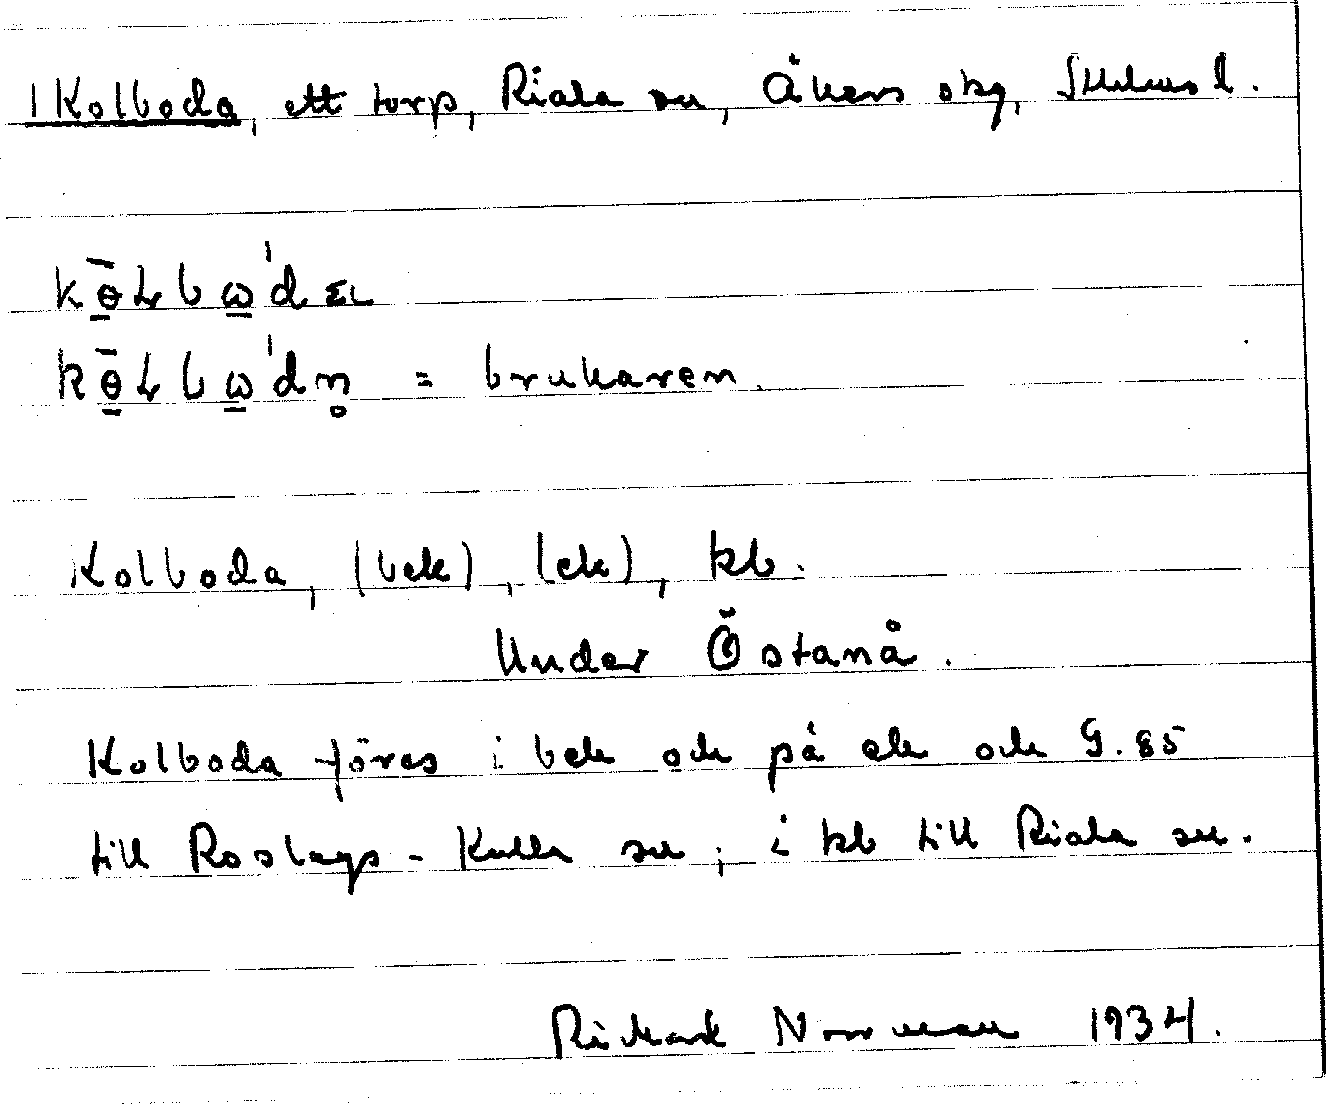 1 Kolboda, ett torp, Riala sn, Åkers skg, Sthlms l.
kө̄ɫbω'da
kө̄ɫbω'dn̥ = brukaren.
Kolboda, (bek), (ek), kb.
Under Östanå.
Kolboda föres i bek och på ek och G. 85
till Roslags-Kulla sn; i kb till Riala sn.
Rickard Norrman 1934.